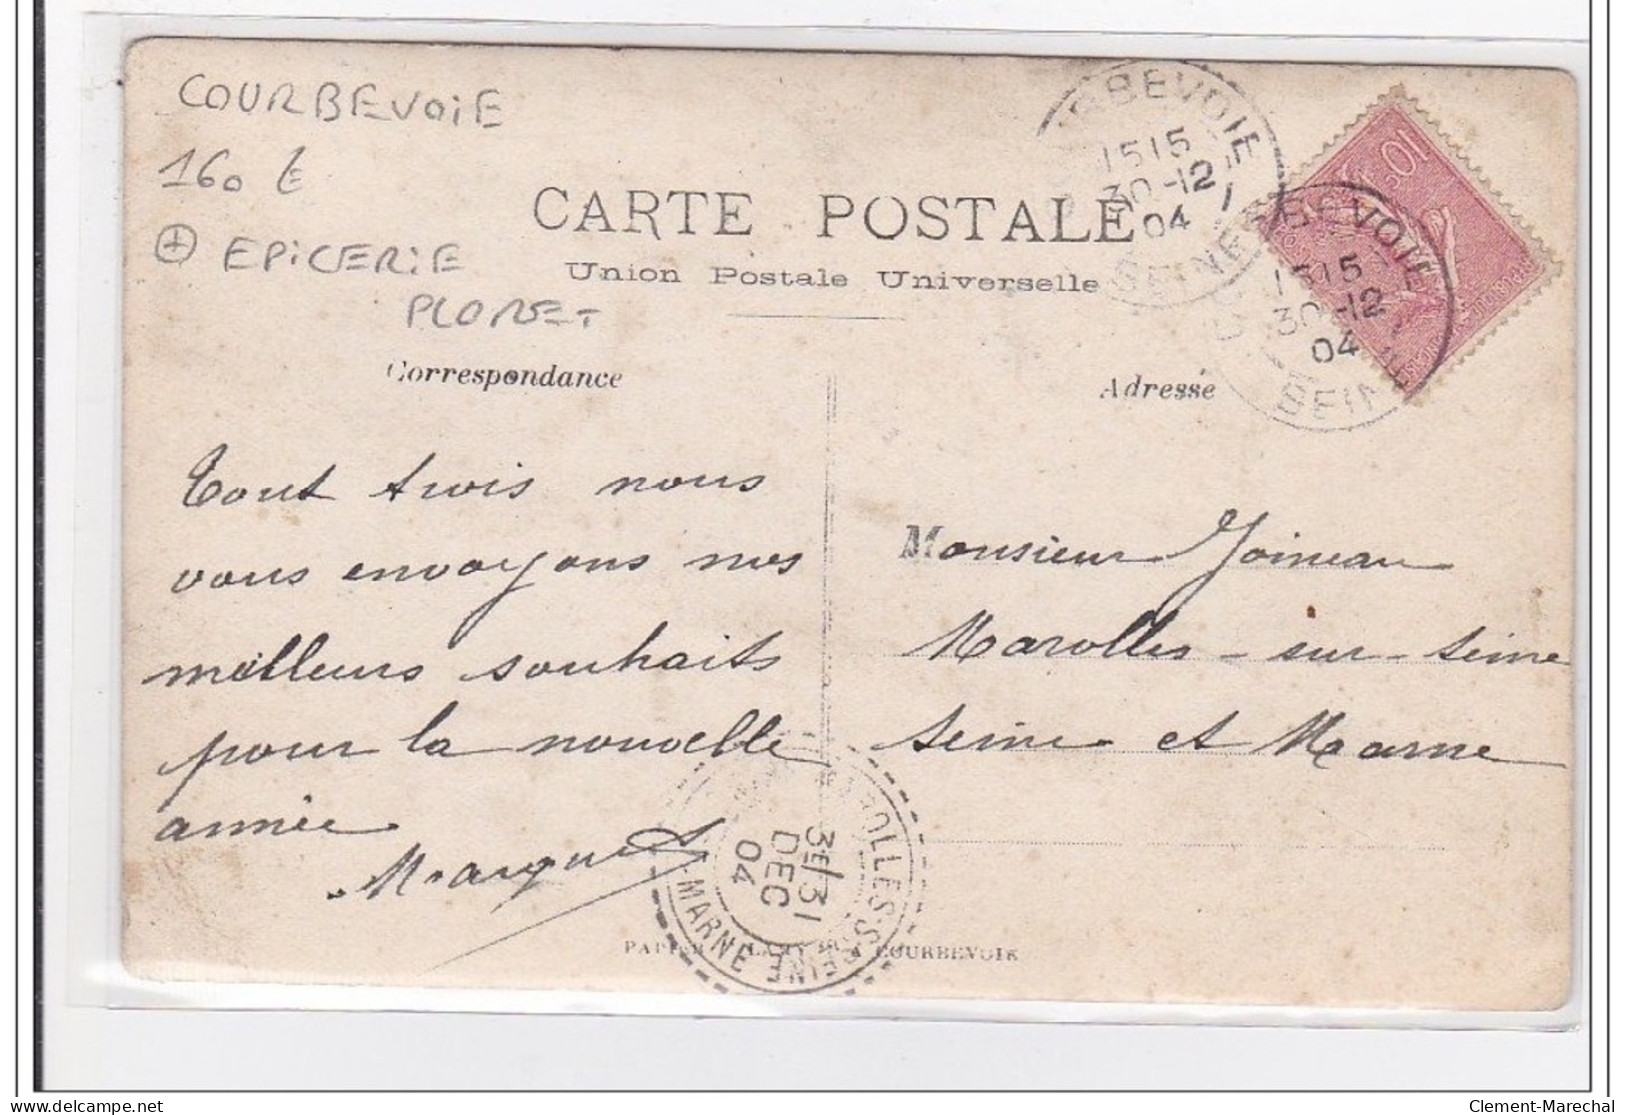 COURBEVOiE
160 €
+ EPiCERiE
CARTE POSTALE
Union Postale Universelle
Correspondance
Adresse
COURBEVOIE
15 15
30-12
04
SEINE
COURBEVOIE
15 15
30-12
04
SEINE
10
Tout trois nous
vous envoyons nos
meilleurs souhaits
pour la nouvelle
année
Monsieur Joineau
Marolles-sur-Seine
Seine et Marne
MAROLLES-S-SEINE
SEINE-ET-MARNE
3E/31
DEC
04
A COURBEVOIE
delcampe.net
Clement-Marechal